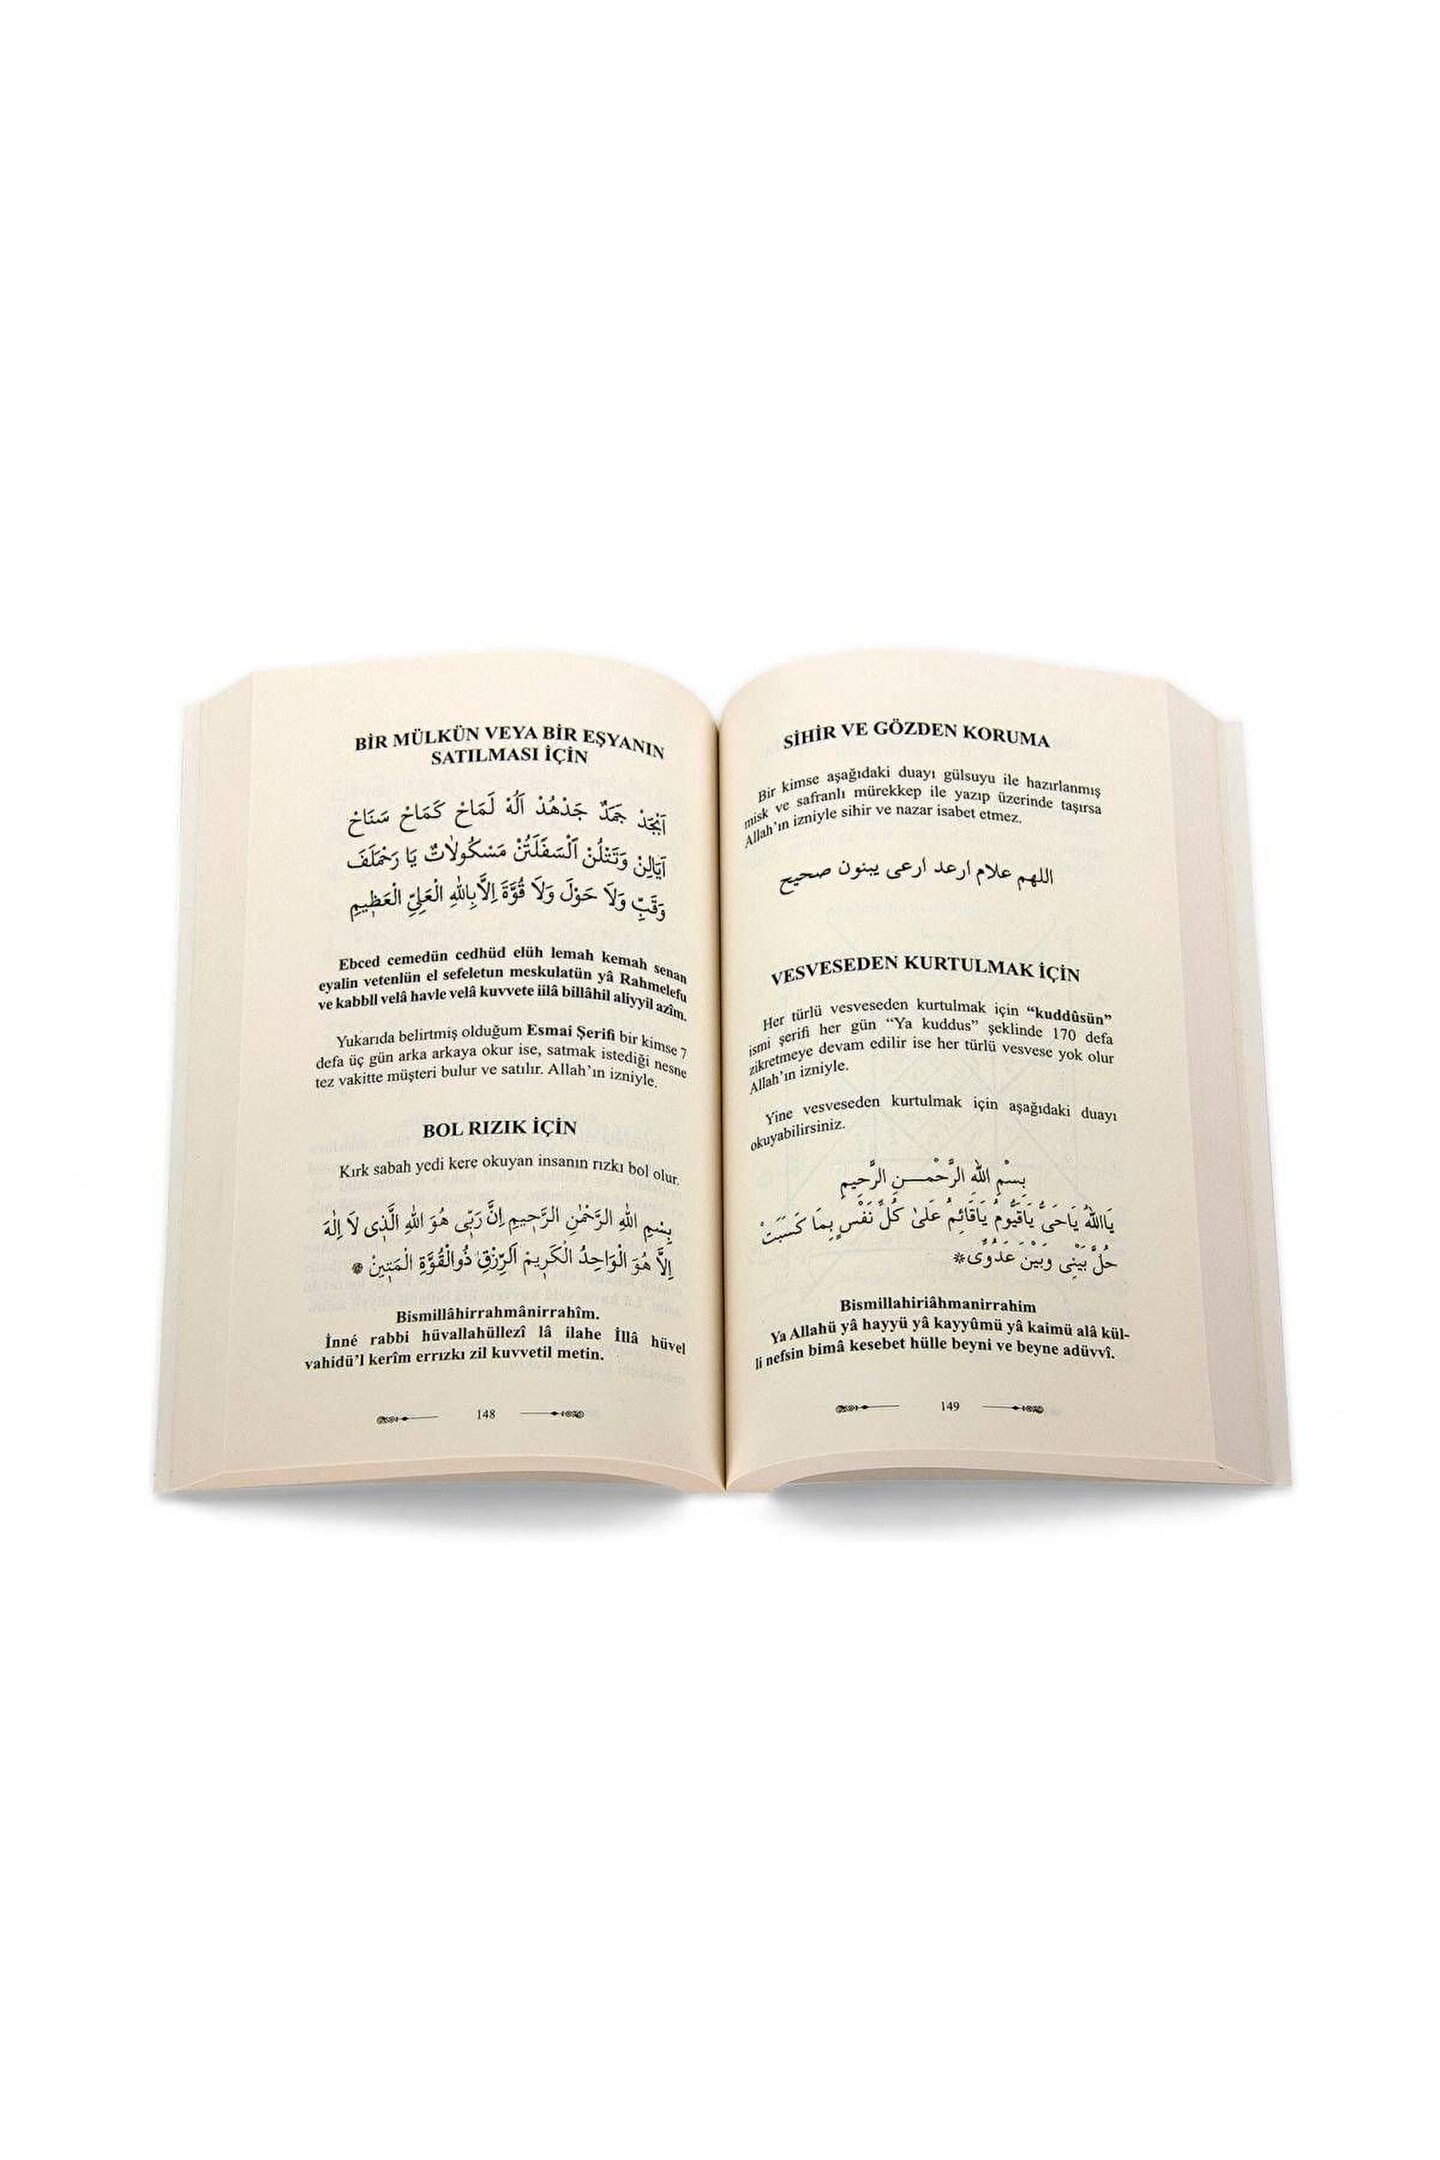 BİR MÜLKÜN VEYA BİR EŞYANIN
SATILMASI İÇİN
اَبْجَدْ جَمَدٌ جَدْهُدْ اَلُهْ لَمَاحْ كَمَاحْ سَنَاحْ
اَيَالِنْ وَتَنْلُنْ اَلْسَفَلَتُنْ مَسْكُولَاتٌ يَا رَحْمَلَفَ
وَقَبِّ وَلَا حَوْلَ وَلَا قُوَّةَ اِلَّا بِاللّٰهِ الْعَلِيِّ الْعَظِيمِ
Ebced cemedün cedhüd elüh lemah kemah senan
eyalin vetenlün el sefeletun meskulatün yâ Rahmelefu
ve kabbll velâ havle velâ kuvvete iilâ billâhil aliyyil azîm.
Yukarıda belirtmiş olduğum Esmai Şerifi bir kimse 7
defa üç gün arka arkaya okur ise, satmak istediği nesne
tez vakitte müşteri bulur ve satılır. Allah’ın izniyle.
BOL RIZIK İÇİN
Kırk sabah yedi kere okuyan insanın rızkı bol olur.
بِسْمِ اللّٰهِ الرَّحْمٰنِ الرَّحِيمِ اِنَّ رَبِّى هُوَ اللّٰهِ الَّذِى لَا اِلٰهَ
اِلَّا هُوَ الْوَاحِدُ الْكَرِيمْ اَلرِّزْقِ ذُوالْقُوَّةِ الْمَتِينْ *
Bismillâhirrahmânirrahîm.
İnné rabbi hüvallahüllezî lâ ilahe İllâ hüvel
vahidü’l kerîm errızkı zil kuvvetil metin.
148
SİHİR VE GÖZDEN KORUMA
Bir kimse aşağıdaki duayı gülsuyu ile hazırlanmış
misk ve safranlı mürekkep ile yazıp üzerinde taşırsa
Allah’ın izniyle sihir ve nazar isabet etmez.
اللهم علام ارعد ارعى يبنون صحيح
VESVESEDEN KURTULMAK İÇİN
Her türlü vesveseden kurtulmak için “kuddûsün”
ismi şerifi her gün “Ya kuddus” şeklinde 170 defa
zikretmeye devam edilir ise her türlü vesvese yok olur
Allah’ın izniyle.
Yine vesveseden kurtulmak için aşağıdaki duayı
okuyabilirsiniz.
بِسْمِ اللّٰهِ الرَّحْمٰـنِ الرَّحِيمِ
يَااَللّٰهُ يَاحَىُّ يَاقَيُّومُ يَاقَائِمُ عَلىٰ كُلِّ نَفْسٍ بِمَا كَسَبَتْ
حُلَّ بَيْنِى وَبَيْنَ عَدُوِّى*
Bismillahiriâhmanirrahim
Ya Allahü yâ hayyü yâ kayyûmü yâ kaimü alâ kül-
li nefsin bimâ kesebet hülle beyni ve beyne adüvvî.
149